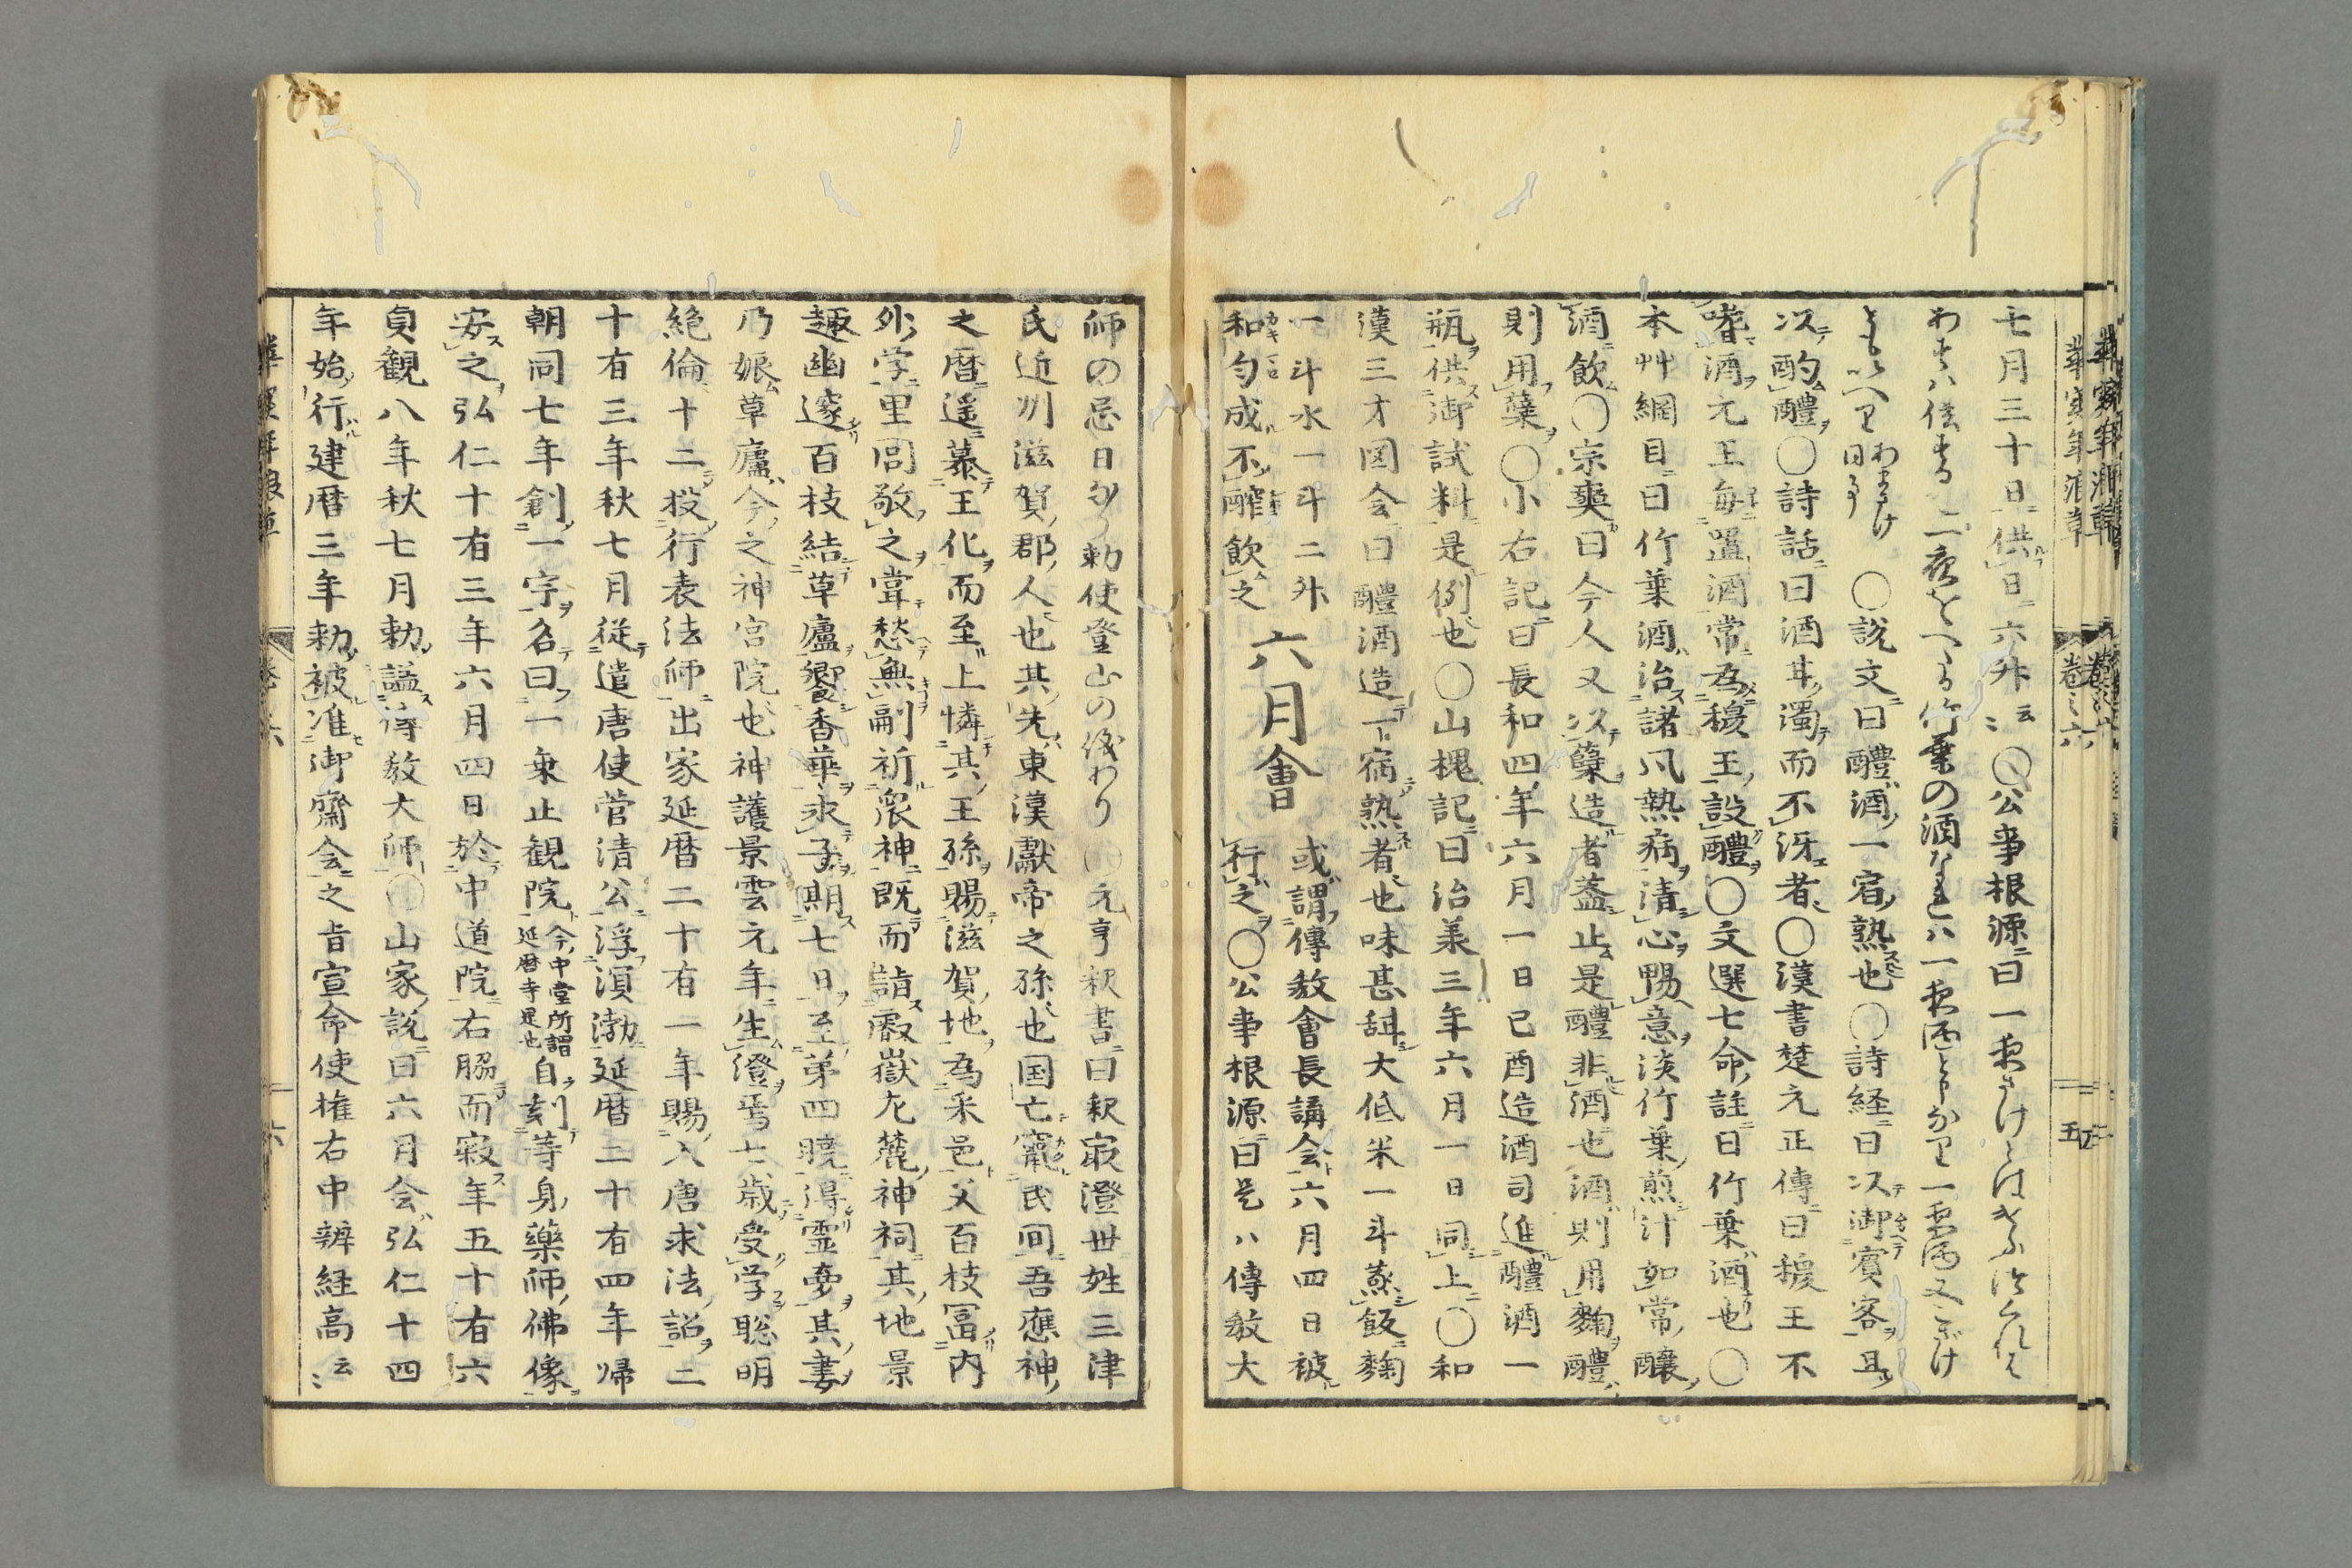 華実年浪草 巻之六 五
七月三十日供日六升云〻〇公事根源曰一夜さけとはけふ
二夜をへる竹葉の酒 一夜酒
〇説文曰醴酒一宿熟也〇詩経曰以御賓客且
以酌醴〇詩話曰酒甘濁而不泲者〇漢書楚元正傳曰穆王不
嗜酒元王毎置酒常為穆王設醴〇文選七命註曰竹葉酒也〇
本艸綱目曰竹葉酒治諸凡熱病清心暢意淡竹葉煎汁如常釀
酒飲〇宗奭曰今人又以糵造者蓋止是醴非酒也酒則用麹醴
則用糵〇小右記曰長和四年六月一日己酉造酒司進醴酒一
瓶供御試料是例也〇山槐記曰治承三年六月一日同上〇和
漢三才図会曰醴酒造下宿熟者也味甚甜大低米一斗蒸飯麹
一斗水一斗二升
和勻成不醡飲之
六月會
或謂傳教會長講会六月四日被
行之〇公事根源曰是ハ傳教大
師の忌日
勅使登山の儀あり〇元亨釈書曰釈最澄世姓三津
氏近州滋賀郡人也其先東漢獻帝之孫也国亡竄民間吾應神
之暦遥慕王化而至上憐其王孫賜滋賀地為采邑父百枝冨内
外学里閭敬之甞愁無嗣祈衆神既而詣叡嶽九麓神祠其地景
趣幽邃百枝結草廬嚮香華求子期七日至第四暁得霊夢其妻
乃娠草廬今之神宮院也神護景雲元年生澄焉七歳受学聡明
絶倫十二投行表法師出家延暦二十有一年賜入唐求法詔二
十有三年秋七月従遣唐使菅清公浮溟渤延暦二十有四年帰
朝同七年創一宇名曰一乗止観院今中堂所謂延暦寺是也自刻等身薬師佛像
安之弘仁十有三年六月四日於中道院右脇而寂年五十有六
貞観八年秋七月勅謚傳教大師〇山家説曰六月会弘仁十四
年始行建暦三年勅被准御齋会之旨宣命使権右中辨経高云〻
華実年浪草 巻六 六